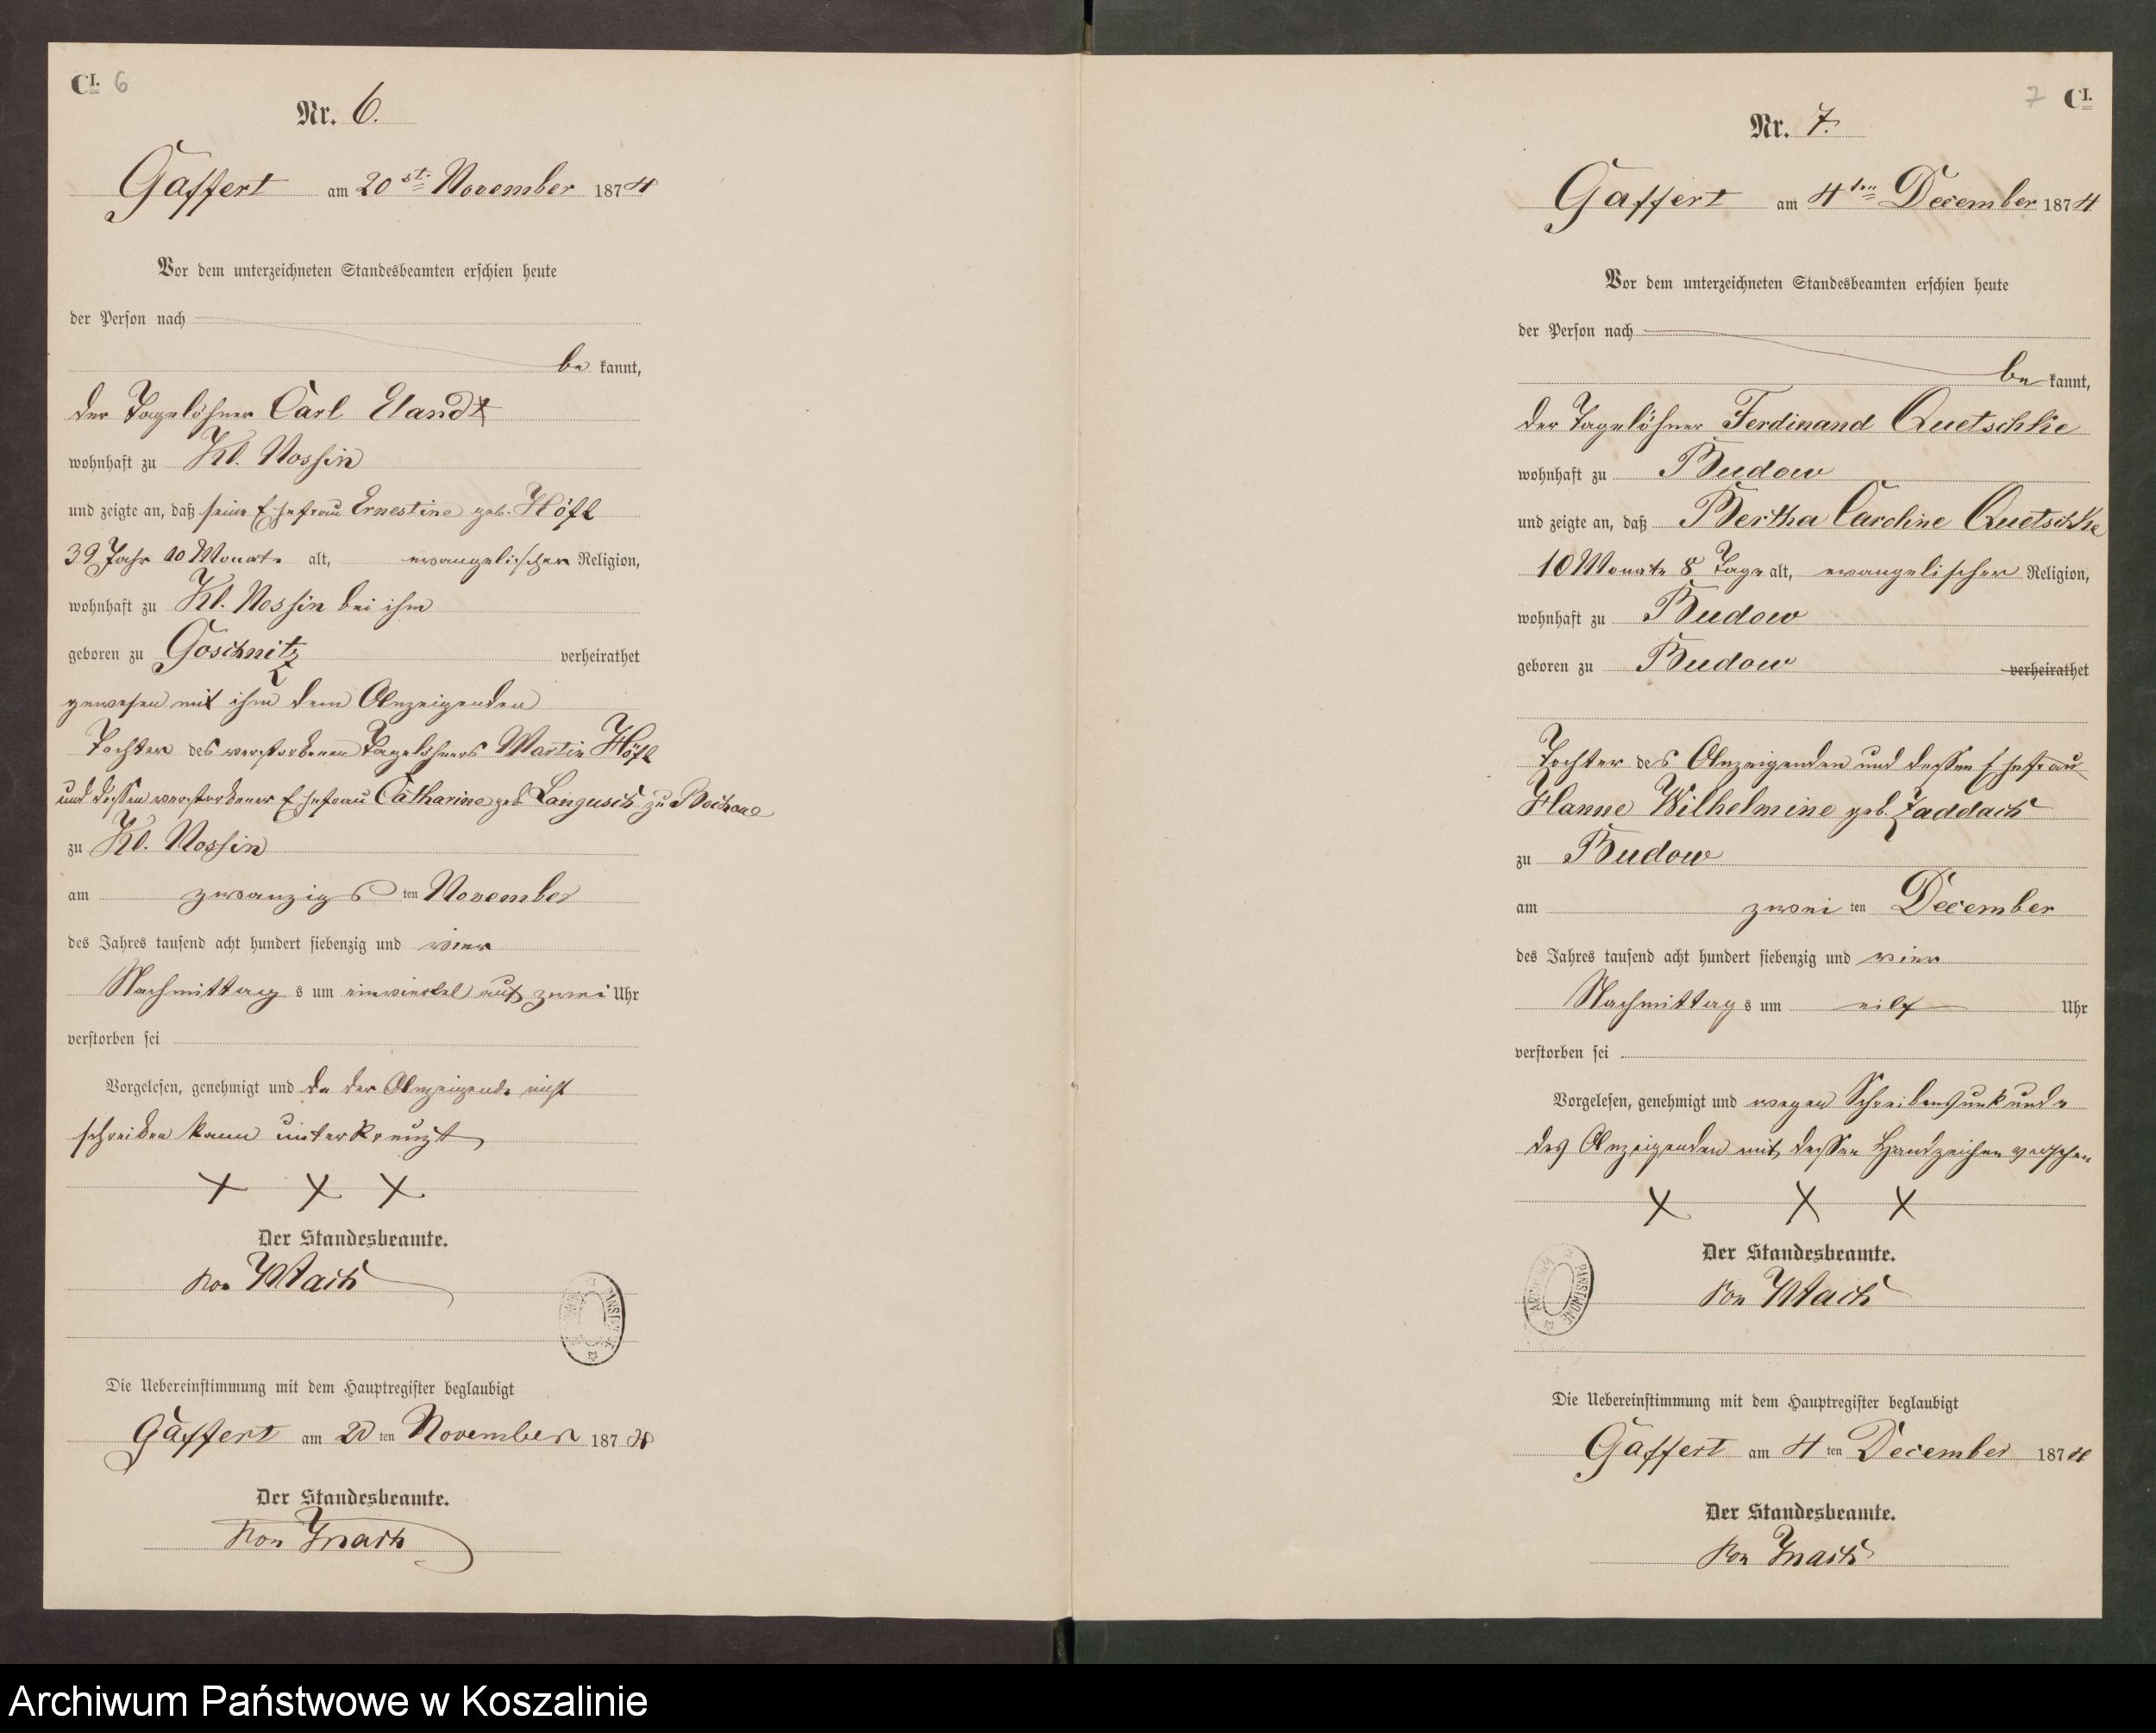 C I. 6
Nr. 6.
Gaffert am 20 st. November 1874
Vor dem unterzeichneten Standesbeamten erschien heute
der Person nach
be kannt,
der Tagelöhner Carl Elandt
wohnhaft zu Kl. Nossin
und zeigte an, daß seine Ehefrau Ernestine geb. Höft
39 Jahr 10 Monate alt, evangelischer Religion,
wohnhaft zu Kl. Nossin bei ihm
geboren zu Goschnitz verheirathet
gewesen mit ihm dem Anzeigenden
Tochter des verstorbenen Tagelöhners Martin Höft
und dessen verstorbener Ehefrau Catharine geb. Langusch zu
zu Kl. Nossin
am zwanzigsten November
des Jahres tausend acht hundert siebenzig und vier
Nachmittag s um einviertel auf zwei Uhr
verstorben sei
Vorgelesen, genehmigt und da der Anzeigende nicht
schreiben kann unterkreuzt
X X X
Der Standesbeamte.
von Mach
Die Uebereinstimmung mit dem Hauptregister beglaubigt
Gaffert am 20 ten November 1874
Der Standesbeamte.
von Mach
7 C I.
Nr. 7.
Gaffert am 4 ten December 1874
Vor dem unterzeichneten Standesbeamten erschien heute
der Person nach
be kannt,
der Tagelöhner Ferdinand Quetschke
wohnhaft zu Budow
und zeigte an, daß Bertha Caroline Quetschke
10 Monate 8 Tage alt, evangelischer Religion,
wohnhaft zu Budow
geboren zu Budow verheirathet
Tochter des Anzeigenden und dessen Ehefrau
Hanne Wilhelmine geb. Zaddach
zu Budow
am zwei ten December
des Jahres tausend acht hundert siebenzig und vier
Nachmittag s um eilf Uhr
verstorben sei
Vorgelesen, genehmigt und wegen Schreibensunkunde
des Anzeigenden mit dessen Handzeichen versehen
X X X
Der Standesbeamte.
von Mach
PAŃSTWOWE
Die Uebereinstimmung mit dem Hauptregister beglaubigt
Gaffert am 4 ten December 1874
Der Standesbeamte.
von Mach
Archiwum Państwowe w Koszalinie